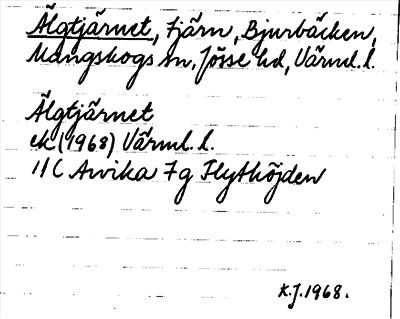 Älgtjärnet, tjärn, Bjurbäcken,
Mangskogs sn, Jösse hd, Värml. l.
Älgtjärnet
ek (1968) Värml. l.
11C Arvika 7g Flythöjden
K.J. 1968.